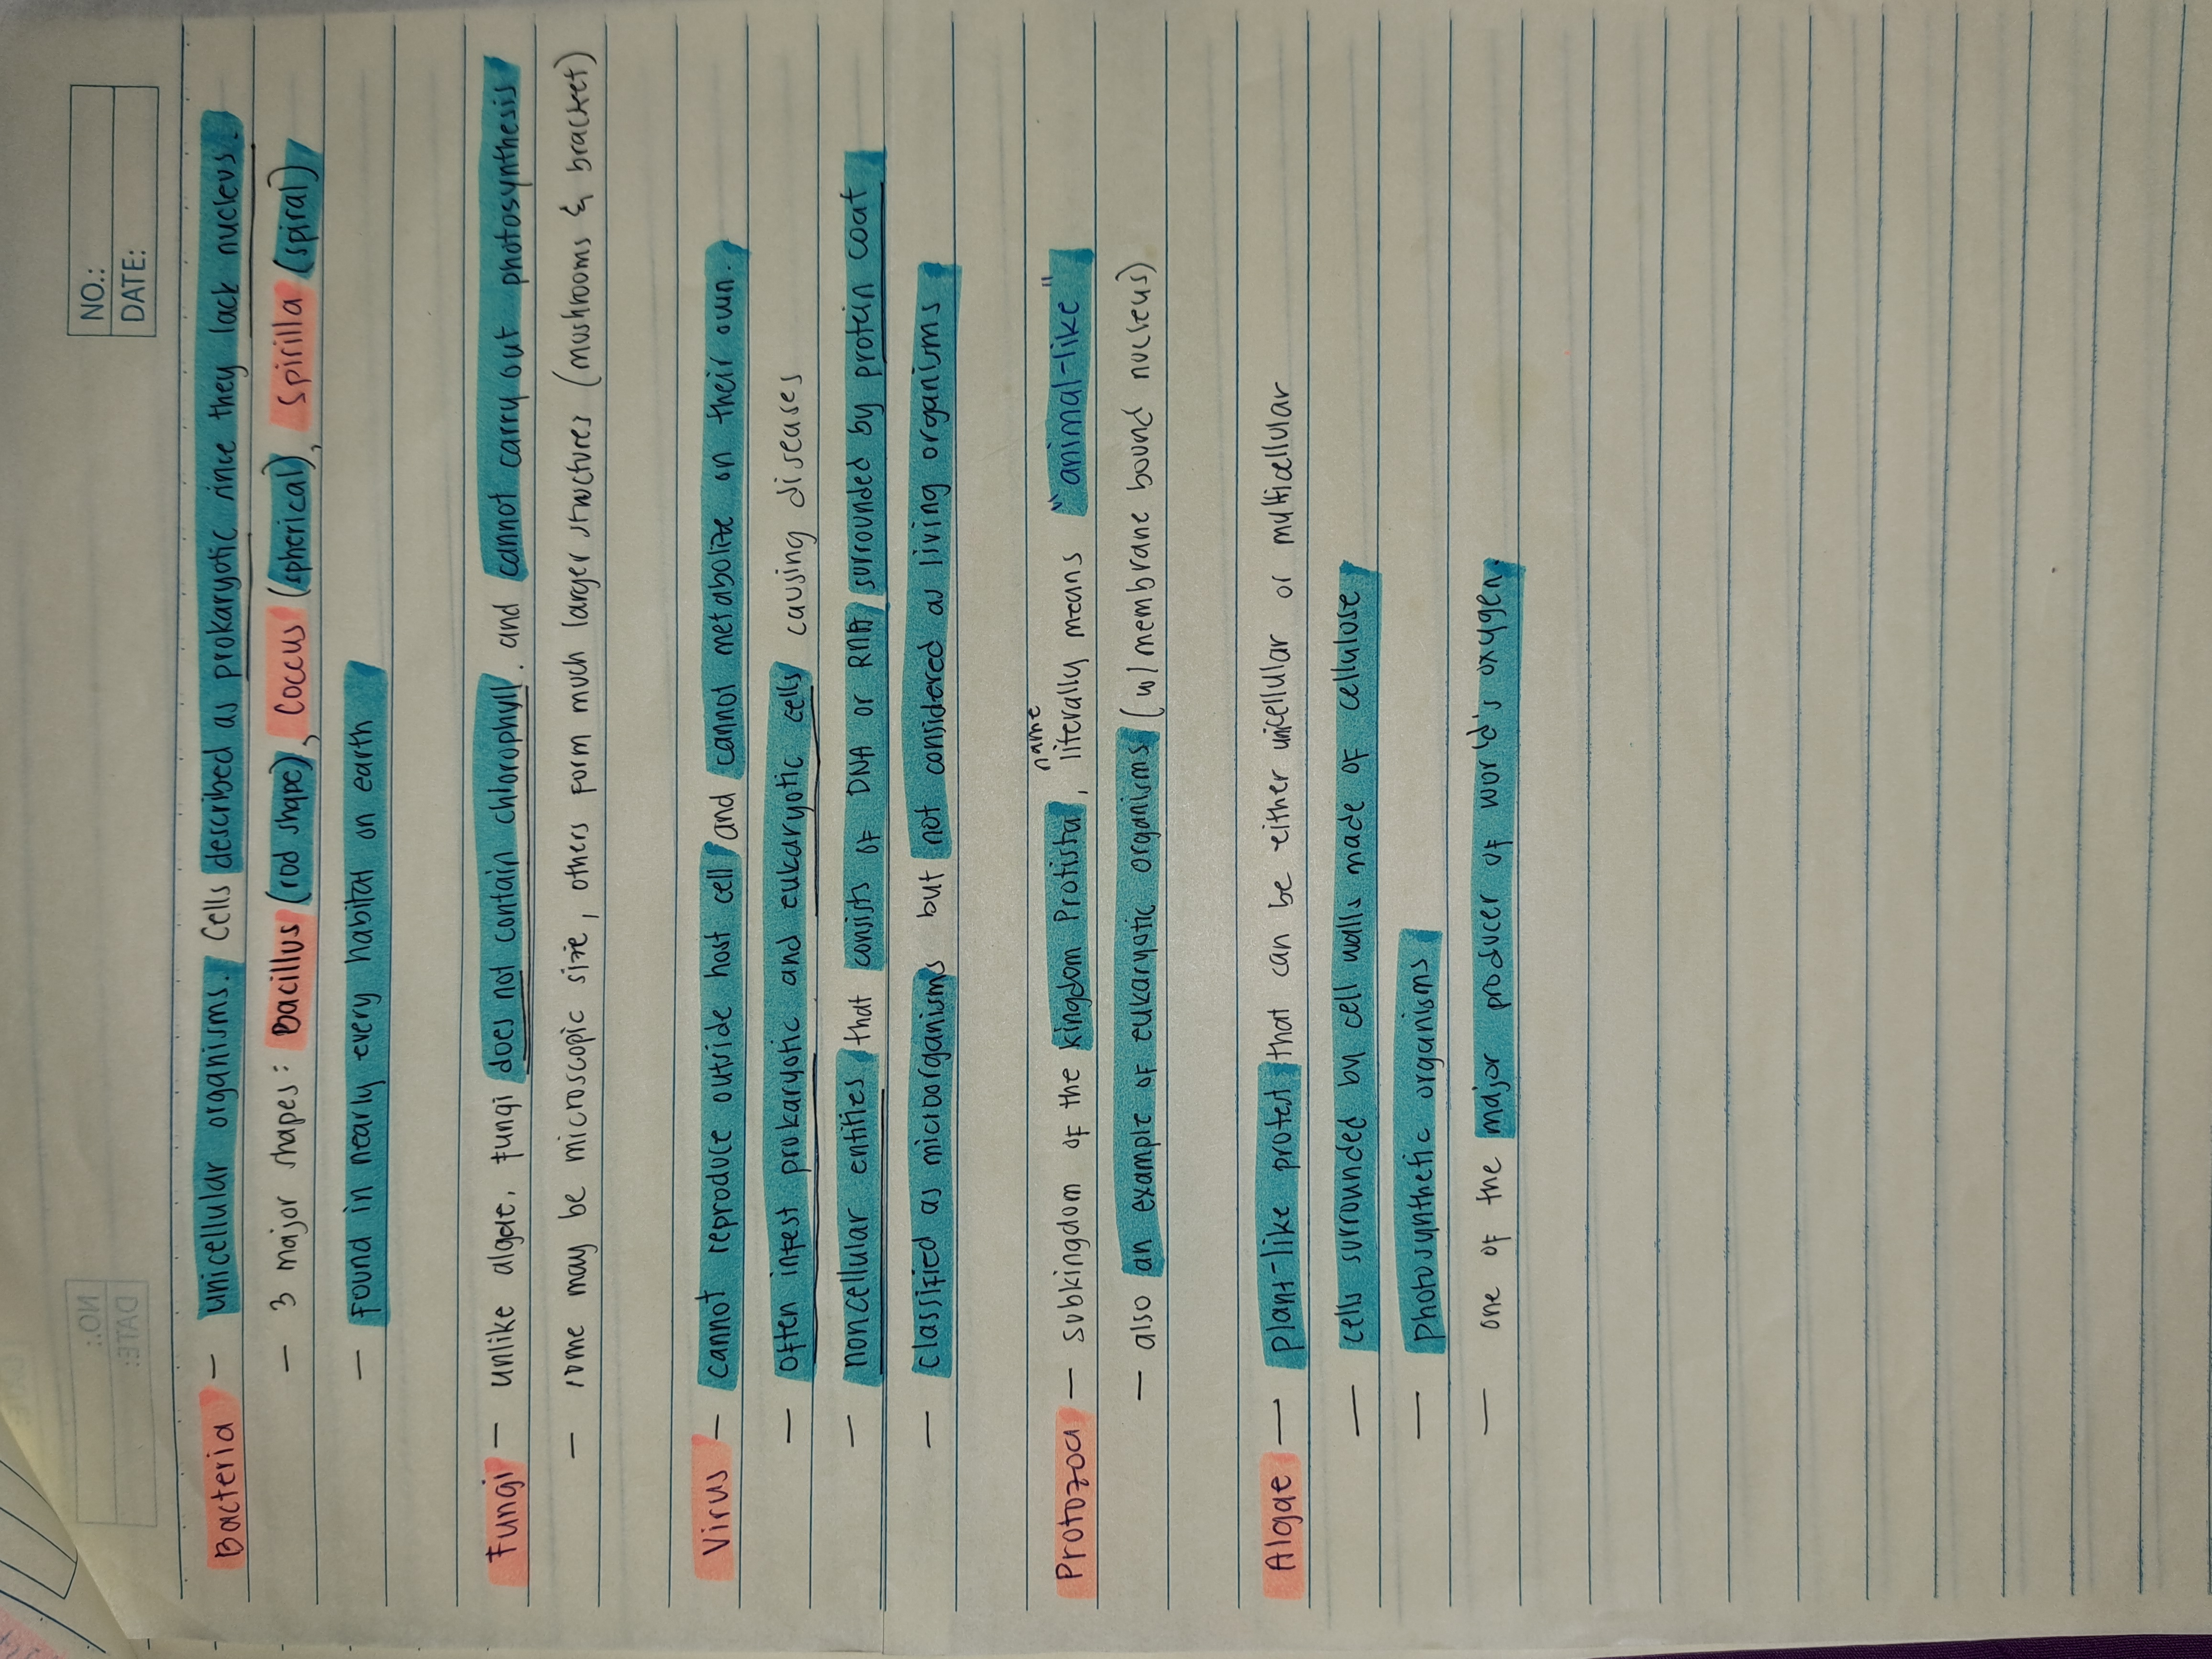 NO.:
DATE:
Bacteria — unicellular organisms. Cells described as prokaryotic since they lack nucleus.
— 3 major shapes: Bacillus (rod shape), Coccus (spherical), Spirilla (spiral)
— Found in nearly every habitat on earth
Fungi — unlike algae, fungi does not contain chlorophyll. and cannot carry out photosynthesis
— some may be microscopic size, others form much larger structures (mushrooms & bracket)
Virus — cannot reproduce outside host cell and cannot metabolize on their own.
— often infest prokaryotic and eukaryotic cells causing diseases
— noncellular entities that consists of DNA or RNA surrounded by protein coat
— classified as microorganisms but not considered as living organisms
Protozoa — subkingdom of the kingdom Protista, name literally means "animal-like"
— also an example of eukaryotic organisms (w/ membrane bound nucleus)
Algae — plant-like protest that can be either unicellular or multicellular
— cells surrounded by cell walls made of cellulose
— photosynthetic organisms
— one of the major producer of world's oxygen.